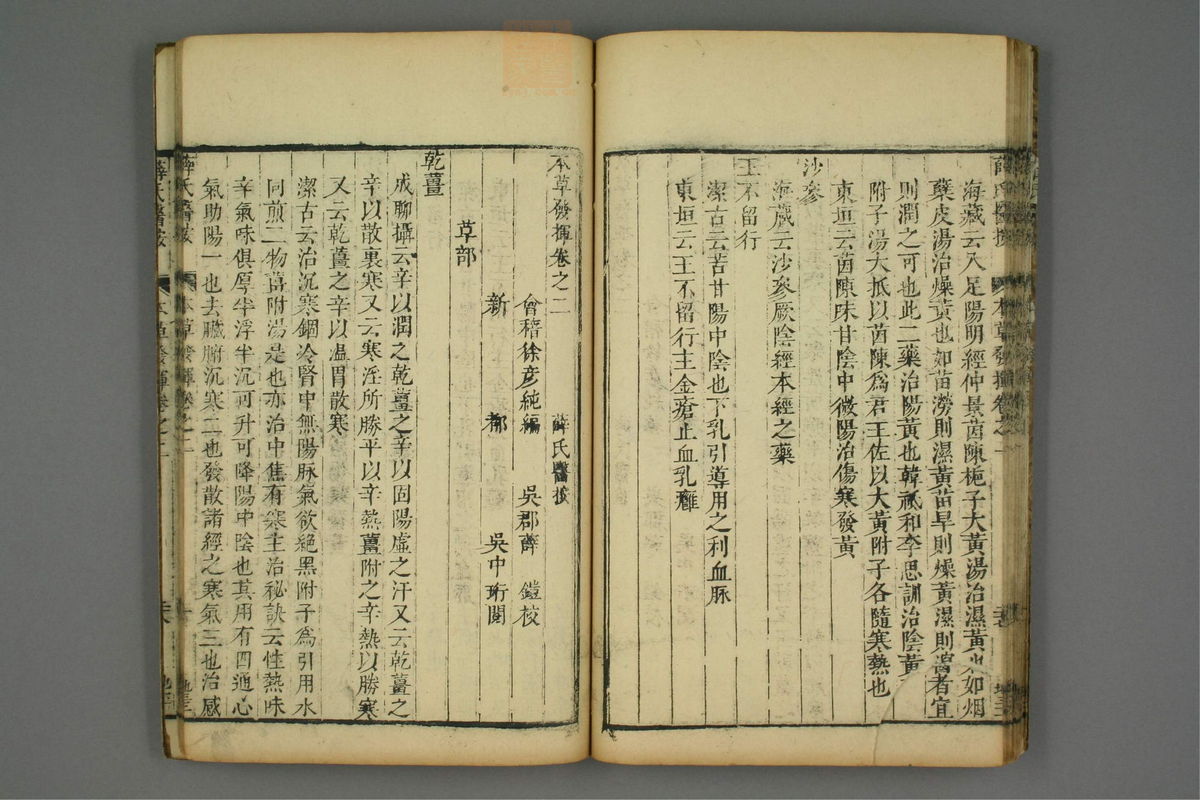 海藏云入足陽明經仲景茵陳梔子大黃湯治濕黃也如烟
蘗皮湯治燥黃也如苗澇則濕黃苗旱則燥黃濕則瀉者宜
則潤之可也此二藥治陽黃也韓祇和李思訓治陰黃
附子湯大抵以茵陳爲君王佐以大黃附子各隨寒熱也
東垣云茵陳味甘陰中微陽治傷寒發黃
沙參
海藏云沙參厥陰經本經之藥
王不留行
潔古云苦甘陽中陰也下乳引導用之利血脉
東垣云王不留行主金瘡止血乳癰
本草發揮卷之二
薛氏醫按
會稽徐彥純編
吳郡薛鎧校
新都吳中珩閱
草部
乾薑
成聊攝云辛以潤之乾薑之辛以固陽虛之汗又云乾薑之
辛以散裏寒又云寒淫所勝平以辛熱薑附之辛熱以勝寒
又云乾薑之辛以溫胃散寒
潔古云治沉寒錮冷腎中無陽脉氣欲絕黑附子爲引用水
同煎二物薑附湯是也亦治中焦有寒主治秘訣云性熱味
辛氣味俱厚半浮半沉可升可降陽中陰也其用有四通心
氣助陽一也去臟腑沉寒二也發散諸經之寒氣三也治感
薛氏醫按
本草發揮卷之二